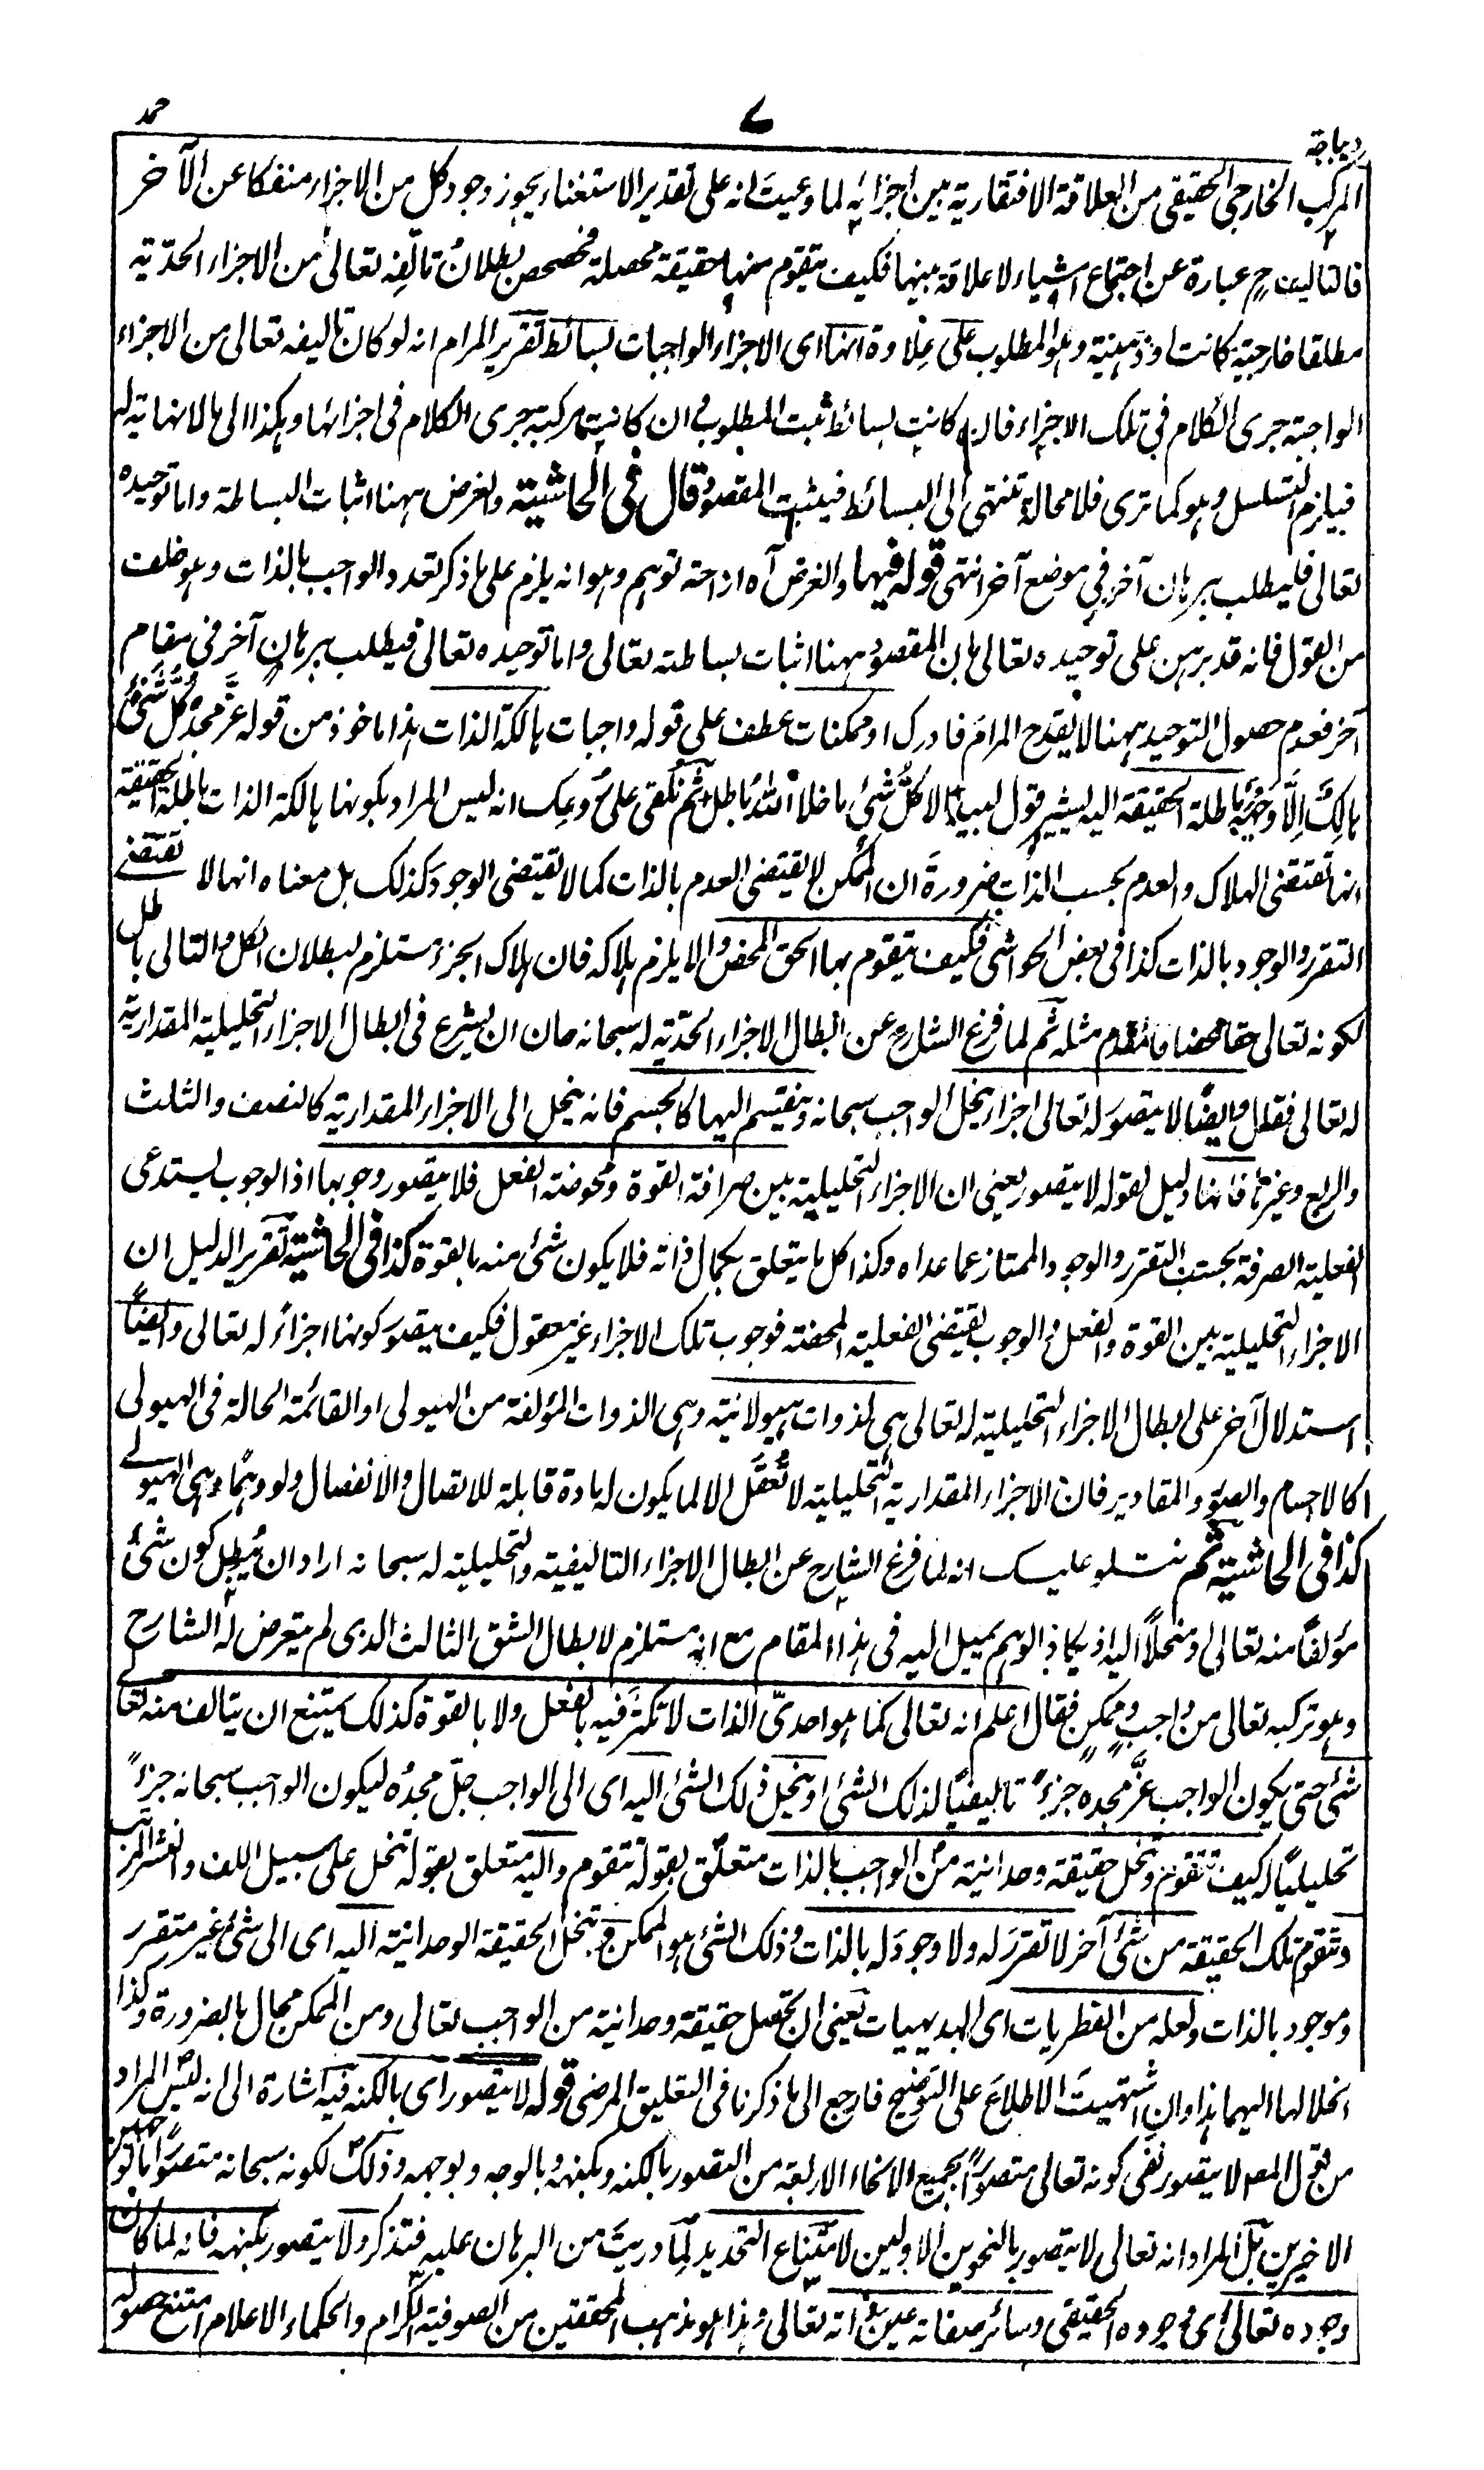 ديباجة
٧
حمد
المركب الخارجي الحقيقي من العلاقة الافتقارية بين اجزائه لما وعيت انه على تقدير الاستغناء يجوز وجود كل من الاجزاء منفكا عن الآخر
فالتاليف ح عبارة عن اجتماع اشياء لا علاقة بينها فكيف يتقوم منها حقيقة محصلة فحصحص بطلان تالفه تعالى من الاجزاء الحدّية
مطلقا خارجية كانت او ذهنية وهو المطلوب على علاوة انها اى الاجزاء الواجبات بسائط تقرير المرام انه لو كان تاليفه تعالى من الاجزاء
الواجبة جرى الكلام في تلك الاجزاء فان كانت بسائط ثبت المطلوب وان كانت مركبة جرى الكلام فى اجزائها وهكذا الى ما لا نهاية له
فيلزم التسلسل وهو كما ترى فلا محالة تنتهى الى البسائط فيثبت المقصود قال فى الحاشية والغرض ههنا اثبات البساطة واما توحيده
تعالى فليطلب ببرهان آخر فى موضع آخر انتهى قوله فيها والغرض آه ازاحة توهم وهو انه يلزم على ما ذكر تعدد الواجب بالذات وهو خلف
من القول فانه قد برهن على توحيده تعالى بان المقصود ههنا اثبات بساطته تعالى واما توحيده تعالى فيطلب ببرهان آخر فى مقام
آخر فعدم حصول التوحيد ههنا لا يقدح المرام فادرك او ممكنات عطف على قوله واجبات هالكة الذات هذا ماخوذ من قوله عزّ مجده كل شئ
هالك الّا وجهه باطلة الحقيقة اليه يشير قول لبيد الا كل شئ ما خلا الله باطل ثم نلقى على روعك انه ليس المراد بكونها هالكة الذات باطلة الحقيقة
انها تقتضى الهلاك والعدم بحسب الذات ضرورة ان الممكن لا يقتضى العدم بالذات كما لا يقتضى الوجود كذلك بل معناه انها لا تقتضى
التقرر والوجود بالذات كذا فى بعض الحواشى فكيف يتقوم بها الحق المحض والا يلزم هلاكه فان هلاك الجزء مستلزم لبطلان الكل والتالى باطل
لكونه تعالى حقا محضا فالمقدم مثله ثم لما فرغ الشارح عن ابطال الاجزاء الحدّية له سبحانه حان ان يشرع فى ابطال الاجزاء التحليلية المقدارية
له تعالى فقال وايضًا لا يتصور له تعالى اجزاء ينحل الواجب سبحانه وينقسم اليها كالجسم فانه ينحل الى الاجزاء المقدارية كالنصف والثلث
والربع وغيرها فانها دليل لقوله لا يتصور يعنى ان الاجزاء التحليلية بين صرافة القوة ومحوضة الفعل فلا يتصور وجوبها اذ الوجوب يستدعى
الفعلية الصرفة بحسب التقرر والوجود الممتاز عما عداه وكذا كل ما يتعلق بكمال ذاته فلا يكون شئ منه بالقوة كذا فى الحاشية تقرير الدليل ان
الاجزاء التحليلية بين القوة والفعل والوجوب يقتضى الفعلية المحضة فوجوب تلك الاجزاء غير معقول فكيف يتصور كونها اجزاء له تعالى وايضًا
استدلال آخر على ابطال الاجزاء التحليلية له تعالى هى لذوات هيولانية وهى الذوات المؤلفة من الهيولى او القائمة الحالة فى الهيولى
كالاجسام والصور والمقادير فان الاجزاء المقدارية التحليلية لا تُعقل الا لما يكون له مادة قابلة للاتصال والانفصال ولو وهمًا وهى الهيولى
كذا فى الحاشية ثم نتلو عليك انه لما فرغ الشارح عن ابطال الاجزاء التاليفية والتحليلية له سبحانه اراد ان يُبطل كون شئ
مؤلفًا منه تعالى ومنحلًا اليه اذ يكاد الوهم يميل اليه فى هذا المقام مع انه مستلزم لابطال الشق الثالث الذى لم يتعرض له الشارح
وهو تركبه تعالى من واجبٍ وممكنٍ فقال اعلم انه تعالى كما هو احدىّ الذات لا تكثر فيه بالفعل ولا بالقوة كذلك يمتنع ان يتالف منه تعالى
شئ حتى يكون الواجب عزّ مجده جزءً تاليفيًا لذلك الشئ او ينحل ذلك الشئ اليه اى الى الواجب جلّ مجدُه ليكون الواجب سبحانه جزءً
تحليليًا له كيف تتقوم وتنحل حقيقة وحدانية من الواجب بالذات متعلّق بقوله تتقوم واليه متعلق بقوله تنحل على سبيل اللف والنشر المرتب
وتتقوم تلك الحقيقة من شئ آخر لا تقرر له ولا وجود له بالذات وذلك الشئ هو الممكن وتنحل الحقيقة الوحدانية اليه اى الى شئ غير متقرر
وموجود بالذات ولعله من الفطريات اى البديهيات يعنى ان تحصل حقيقة وحدانية من الواجب تعالى ومن الممكن محال بالضرورة وكذا
انحلالها اليهما هذا وان اشتهيت الاطلاع على التوضيح فارجع الى ما ذكرنا فى التعليق المرضى قوله لا يتصور اى بالكنه فيه اشارة الى انه ليس المراد
من قول المص لا يتصور نفى كونه تعالى متصورًا بجميع الانحاء الاربعة من التصور بالكنه وبكنهه وبالوجه وبوجهه وذلك لكونه سبحانه متصورًا بالنحوين
الاخيرين بل المراد انه تعالى لا يتصور بالنحوين الاولين لامتناع التحديد لِما دريت من البرهان عليه فتذكر ولا يتصور بكنهه فانه لما كان
وجوده تعالى اى وجوده الحقيقى وسائر صفاته عين ذاته تعالى وهذا هو مذهب المحققين من الصوفية الكرام والحكماء الاعلام امتنع حصوله